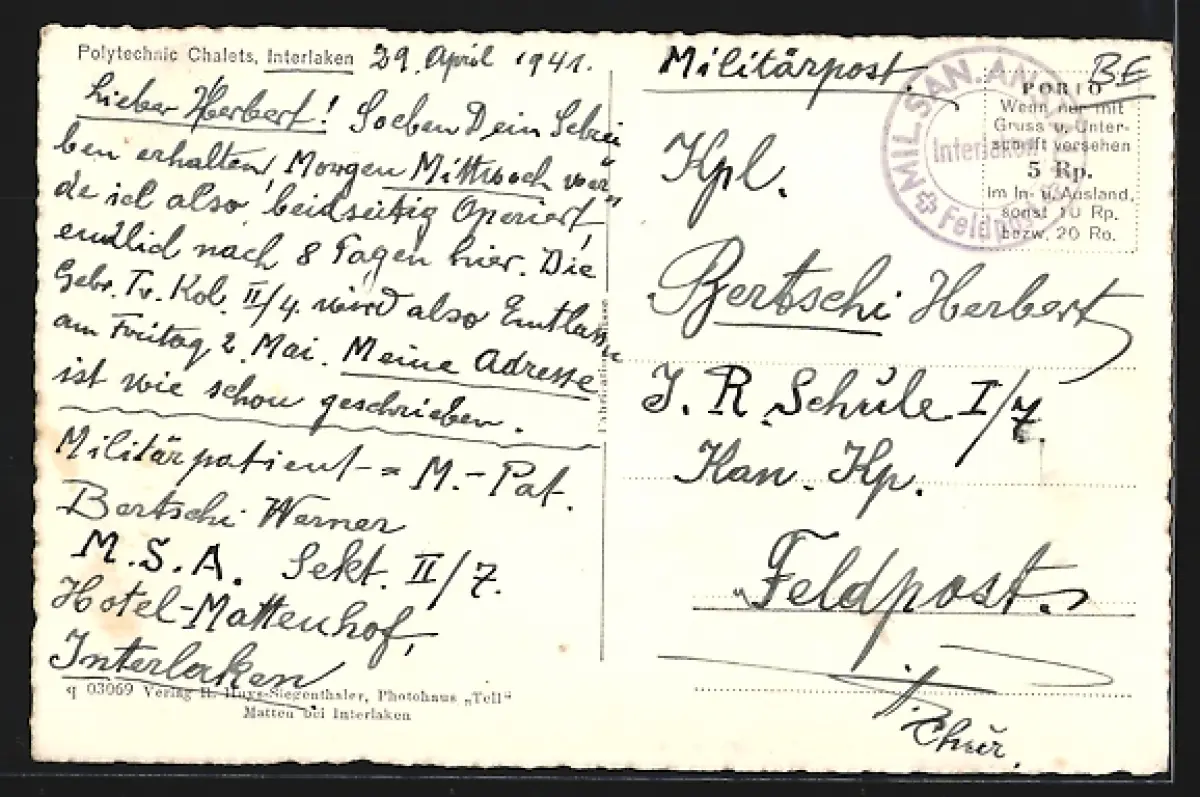 Polytechnic Chalets, Interlaken 29. April 1941.
Lieber Herbert! Soeben Dein Schrei
ben erhalten, Morgen Mittwoch wer"
de ich also beidseitig Operiert,
endlich nach 8 Tagen hier. Die
Gebr. Tr. Kol. II/4. wird also Entlassen
am Freitag 2. Mai. Meine Adresse
ist wie schon geschrieben.
Militärpatient = M.-Pat.
Bertschi Werner
M.S.A. Sekt. II/7.
Hotel-Mattenhof,
Interlaken
q 03069 Verlag H. Huys-Siegenthaler, Photohaus „Tell"
Matten bei Interlaken
Militärpost.
BE
MIL.SAN.AN
Interlaken
Feldpost
PORTO
Wenn nur mit
Gruss u. Unter-
schrift versehen
5 Rp.
im In- u. Ausland,
sonst 10 Rp.
bezw. 20 Rp.
Kpl.
Bertschi Herbert
J. R. Schule I/7.
Kan. Kp.
"Feldpost.
Chur.